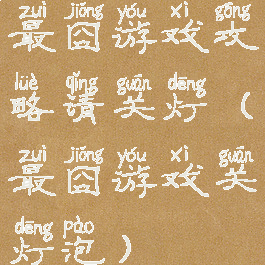 zuì jiǒng yóu xì gōng
最囧游戏攻
lüè qǐng guān dēng
略请关灯（
zuì jiǒng yóu xì guān
最囧游戏关
dēng pào
灯泡）